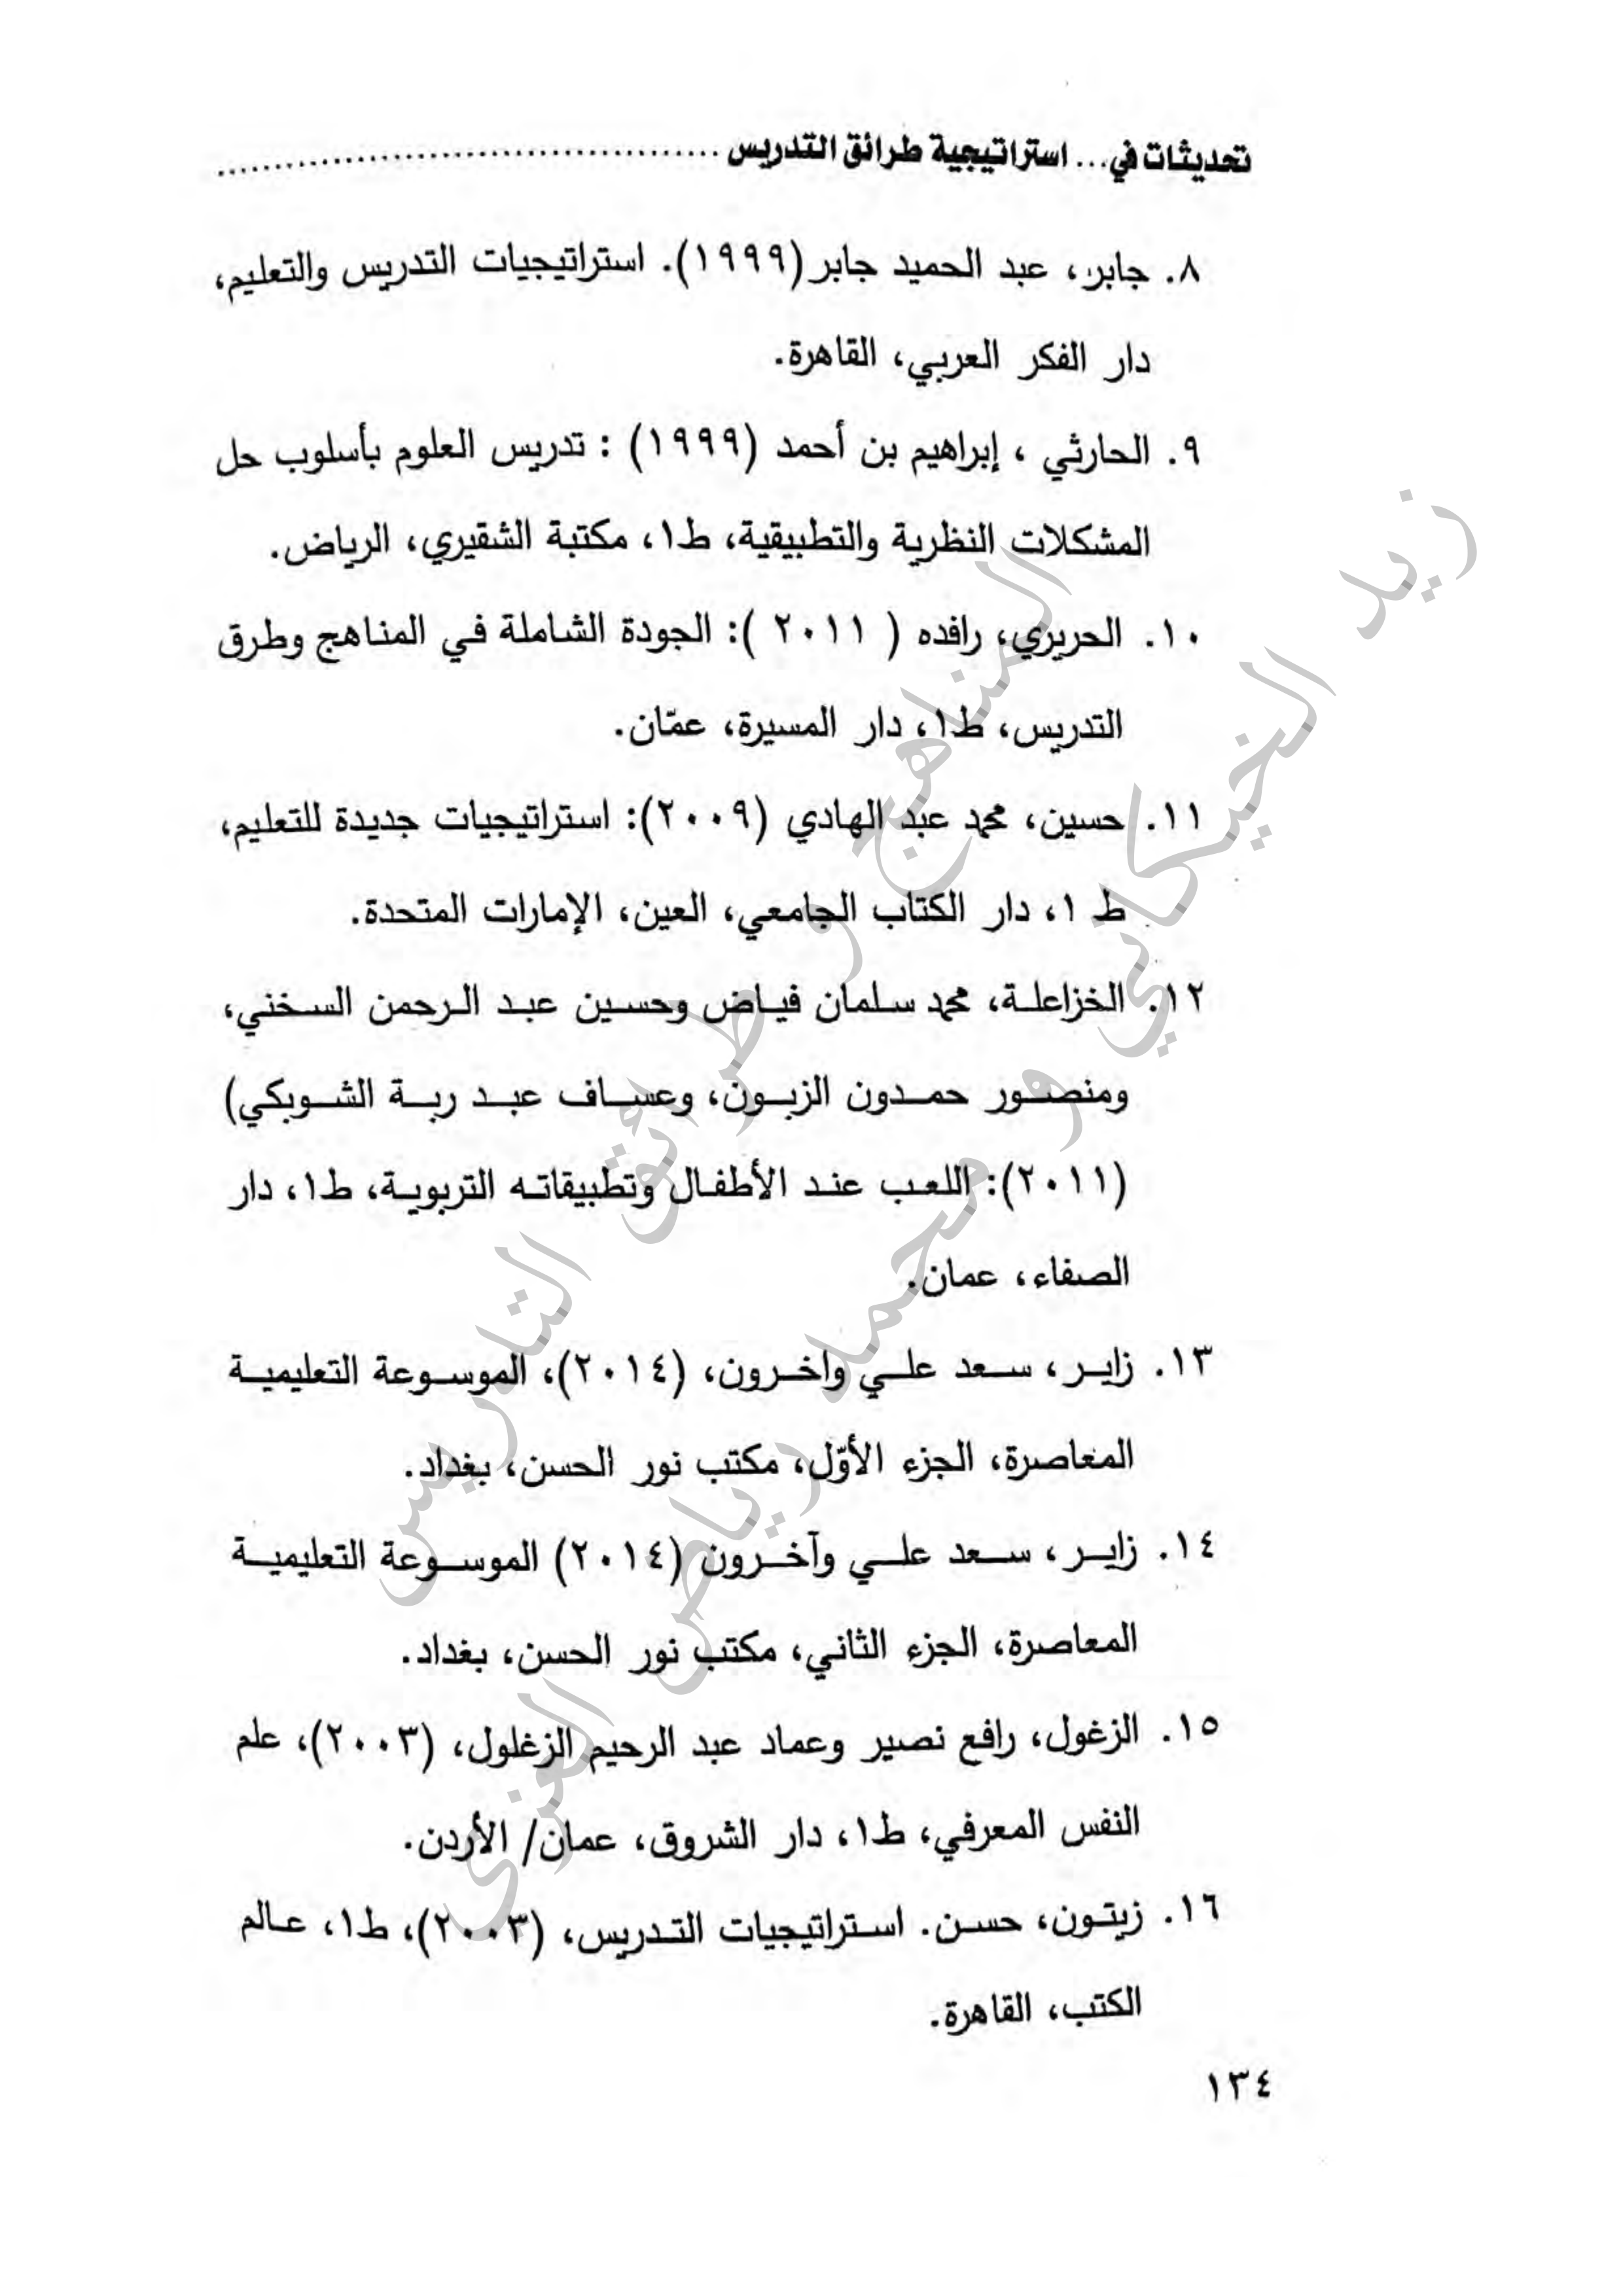 تحديثات في... استراتيجية طرائق التدريس ...............................................
٨. جابر، عبد الحميد جابر (١٩٩٩). استراتيجيات التدريس والتعليم،
دار الفكر العربي، القاهرة.
٩. الحارثي ، إبراهيم بن أحمد (١٩٩٩) : تدريس العلوم بأسلوب حل
المشكلات النظرية والتطبيقية، ط١، مكتبة الشقيري، الرياض.
١٠. الحريري، رافده ( ٢٠١١ ): الجودة الشاملة في المناهج وطرق
التدريس، ط١، دار المسيرة، عمّان.
١١. حسين، محمد عبد الهادي (٢٠٠٩): استراتيجيات جديدة للتعليم،
ط ١، دار الكتاب الجامعي، العين، الإمارات المتحدة.
١٢. الخزاعلة، محمد سلمان فياض وحسين عبد الرحمن السخني،
ومنصور حمدون الزبون، وعساف عبد ربة الشوبكي)
(٢٠١١): اللعب عند الأطفال وتطبيقاته التربوية، ط١، دار
الصفاء، عمان.
١٣. زاير، سعد علي واخرون، (٢٠١٤)، الموسوعة التعليمية
المعاصرة، الجزء الأوّل، مكتب نور الحسن، بغداد.
١٤. زاير، سعد علي وآخرون (٢٠١٤) الموسوعة التعليمية
المعاصرة، الجزء الثاني، مكتب نور الحسن، بغداد.
١٥. الزغول، رافع نصير وعماد عبد الرحيم الزغلول، (٢٠٠٣)، علم
النفس المعرفي، ط١، دار الشروق، عمان/ الأردن.
١٦. زيتون، حسن. استراتيجيات التدريس، (٢٠٠٣)، ط١، عالم
الكتب، القاهرة.
١٣٤
المناهج و طرائق التدريس
زيد الخيكاني و محمد رياض الغزي